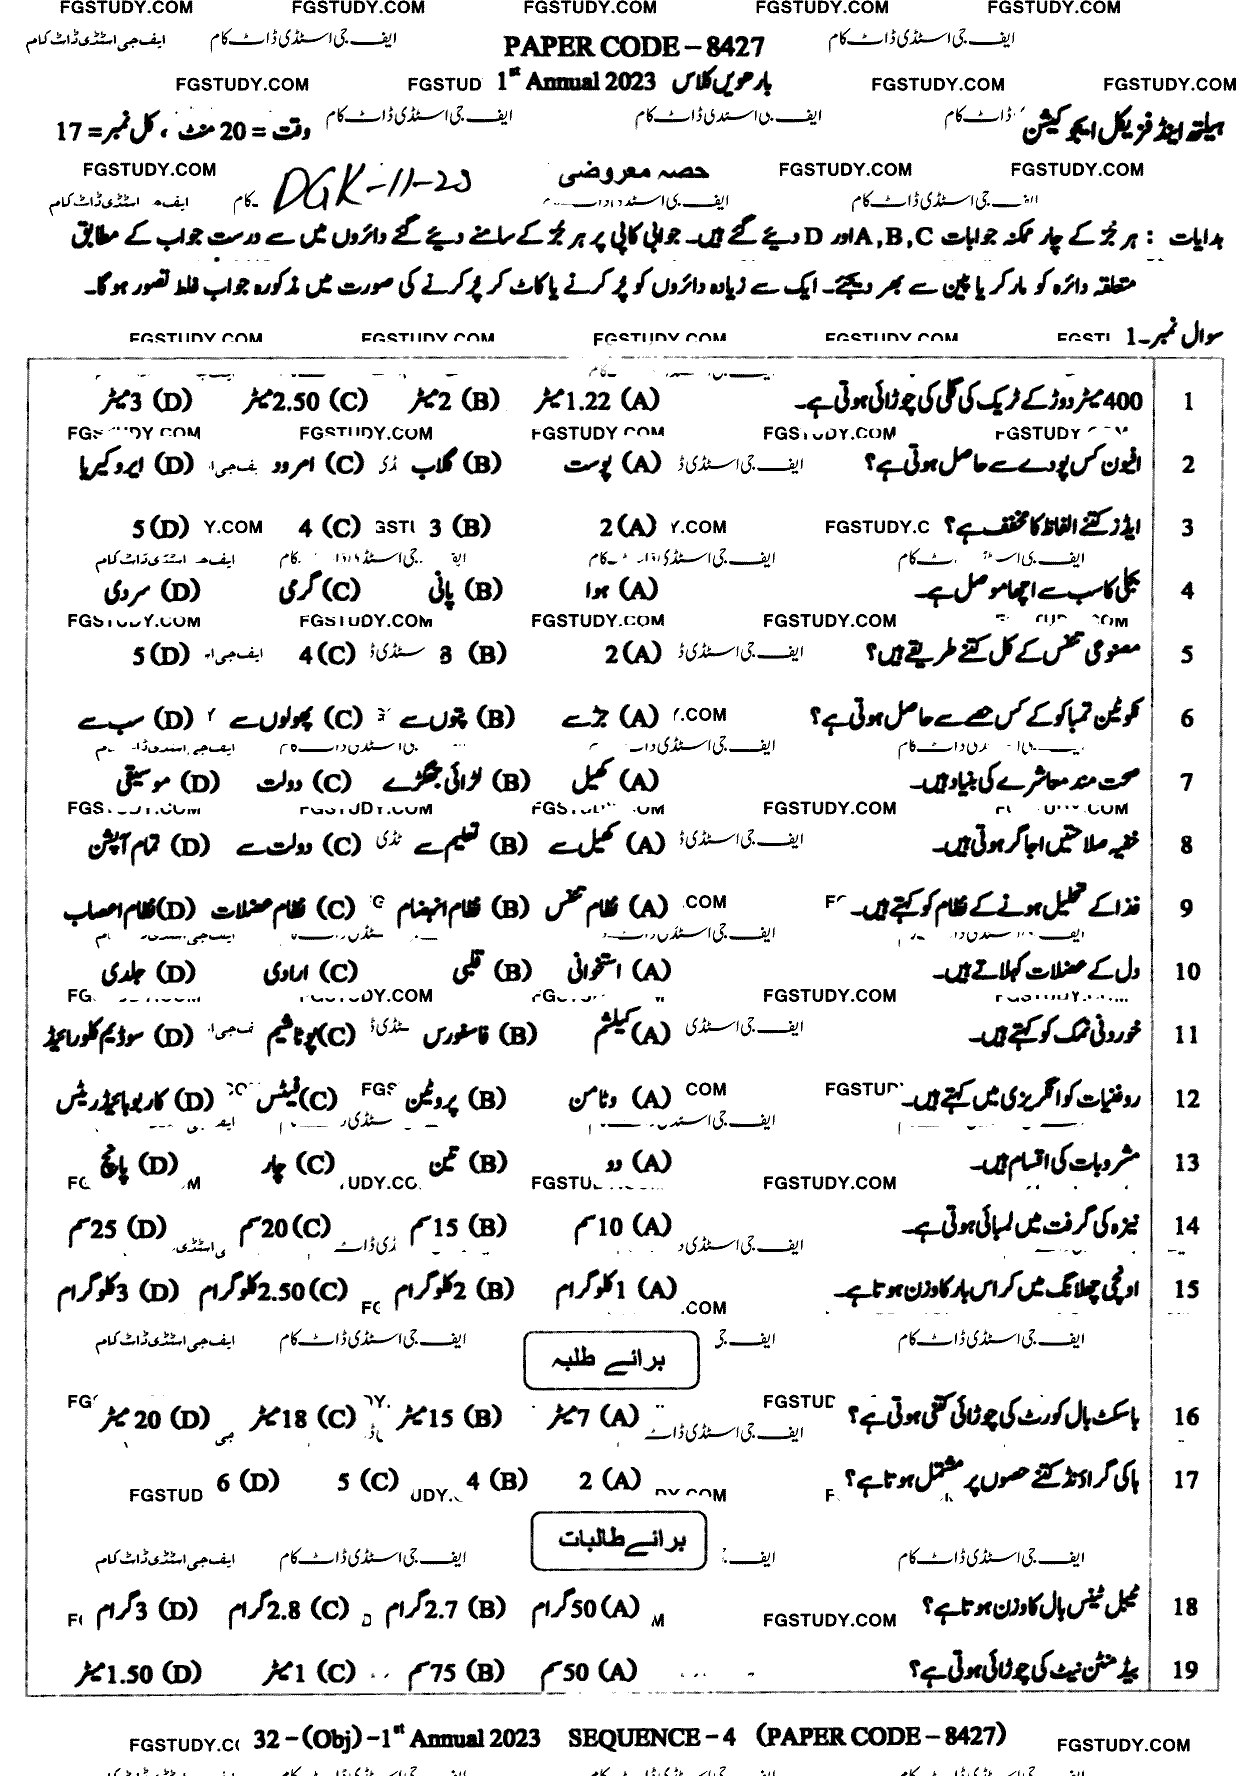 FGSTUDY.COM FGSTUDY.COM FGSTUDY.COM FGSTUDY.COM FGSTUDY.COM
PAPER CODE – 8427
بارھویں کلاس 1st Annual 2023
ہیلتھ اینڈ فزیکل ایجوکیشن
وقت = 20 منٹ ، کل نمبر = 17
حصہ معروضی
DGK-11-23
ہدایات : ہر جُز کے چار ممکنہ جوابات A,B,C اور D دیئے گئے ہیں۔ جوابی کاپی پر ہر جُز کے سامنے دیئے گئے دائروں میں سے درست جواب کے مطابق
متعلقہ دائرہ کو مارکر یا پین سے بھر دیجئے۔ ایک سے زیادہ دائروں کو پُر کرنے یا کاٹ کر پُر کرنے کی صورت میں مذکورہ جواب غلط تصور ہوگا۔
سوال نمبر۔1
1 400 میٹر دوڑ کے ٹریک کی گلی کی چوڑائی ہوتی ہے۔ (A) 1.22 میٹر (B) 2 میٹر (C) 2.50 میٹر (D) 3 میٹر
2 افیون کس پودے سے حاصل ہوتی ہے؟ (A) پوست (B) گلاب (C) امرود (D) ایروکیریا
3 ایڈز کتنے الفاظ کا مخفف ہے؟ (A) 2 (B) 3 (C) 4 (D) 5
4 بجلی کا سب سے اچھا موصل ہے۔ (A) ہوا (B) پانی (C) گرمی (D) سردی
5 مصنوعی تنفس کے کل کتنے طریقے ہیں؟ (A) 2 (B) 3 (C) 4 (D) 5
6 نکوٹین تمباکو کے کس حصے سے حاصل ہوتی ہے؟ (A) جڑ سے (B) پتوں سے (C) پھولوں سے (D) سب سے
7 صحت مند معاشرے کی بنیاد ہیں۔ (A) کھیل (B) لڑائی جھگڑے (C) دولت (D) موسیقی
8 خفیہ صلاحتیں اجاگر ہوتی ہیں۔ (A) کھیل سے (B) تعلیم سے (C) دولت سے (D) تمام آپشن
9 غذا کے تحلیل ہونے کے نظام کو کہتے ہیں۔ (A) نظام تنفس (B) نظام انہضام (C) نظام عضلات (D) نظام اعصاب
10 دل کے عضلات کہلاتے ہیں۔ (A) استخوانی (B) قلبی (C) ارادی (D) جلدی
11 خوردنی نمک کو کہتے ہیں۔ (A) کیلشم (B) فاسفورس (C) پوٹاشیم (D) سوڈیم کلورائیڈ
12 روغنیات کو انگریزی میں کہتے ہیں۔ (A) وٹامن (B) پروٹین (C) فیٹس (D) کاربوہائیڈریٹس
13 مشروبات کی اقسام ہیں۔ (A) دو (B) تین (C) چار (D) پانچ
14 نیزہ کی گرفت میں لمبائی ہوتی ہے۔ (A) 10 سم (B) 15 سم (C) 20 سم (D) 25 سم
15 اونچی چھلانگ میں کراس بار کا وزن ہوتا ہے۔ (A) 1 کلوگرام (B) 2 کلوگرام (C) 2.50 کلوگرام (D) 3 کلوگرام
برائے طلبہ
16 باسکٹ بال کورٹ کی چوڑائی کتنی ہوتی ہے؟ (A) 7 میٹر (B) 15 میٹر (C) 18 میٹر (D) 20 میٹر
17 ہاکی گراؤنڈ کتنے حصوں پر مشتمل ہوتا ہے؟ (A) 2 (B) 4 (C) 5 (D) 6
برائے طالبات
18 ٹیبل ٹینس بال کا وزن ہوتا ہے؟ (A) 50 گرام (B) 2.7 گرام (C) 2.8 گرام (D) 3 گرام
19 بیڈمنٹن نیٹ کی چوڑائی ہوتی ہے؟ (A) 50 سم (B) 75 سم (C) 1 میٹر (D) 1.50 میٹر
32 – (Obj) – 1st Annual 2023 SEQUENCE – 4 (PAPER CODE – 8427)
FGSTUDY.COM